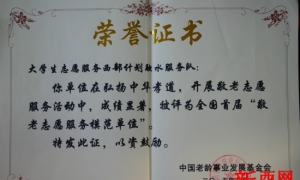 荣誉证书
大学生志愿服务西部计划融水服务队：
你单位在弘扬中华孝道，开展敬老志愿
服务活动中，成绩显著，被评为全国首届“敬
老志愿服务模范单位”。
特发此证，以资鼓励。
中国老龄事业发展基金会